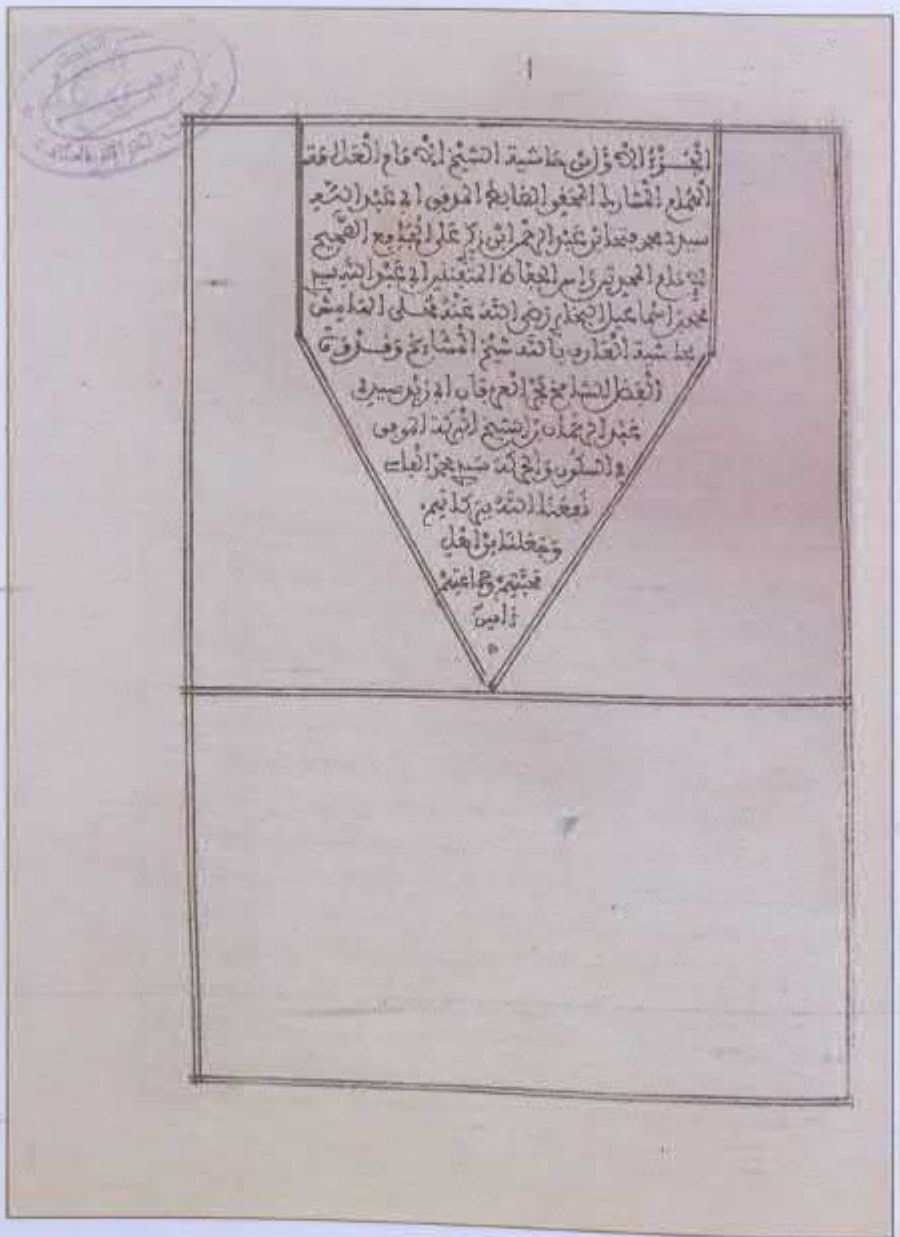 ١
الجزء الأول من حاشية الشيخ الإمام العلامة
الهمام المشارك المحقق الصالح الموفق أبي عبد الله
سيدي محمد فتحا بن عبد الرحمن ابن زكري على الجامع الصحيح
للإمام الحميدي رأس الحفاظ المتقنين أبي عبد الله سيدي
محمد بن إسماعيل البخاري رضي الله عنه محلى الهامش
بحاشية العارف بالله شيخ المشايخ وقدوة
الفضل الشامخ بحر العرفان أبي زيد سيدي
عبد الرحمان بن الشيخ البركة الموفق
في السكون والحركة سيدي محمد الفاسي
نفعنا الله ببركاتهم
وجعلنا من أهل
محبتهم وجماعتهم
ءامين